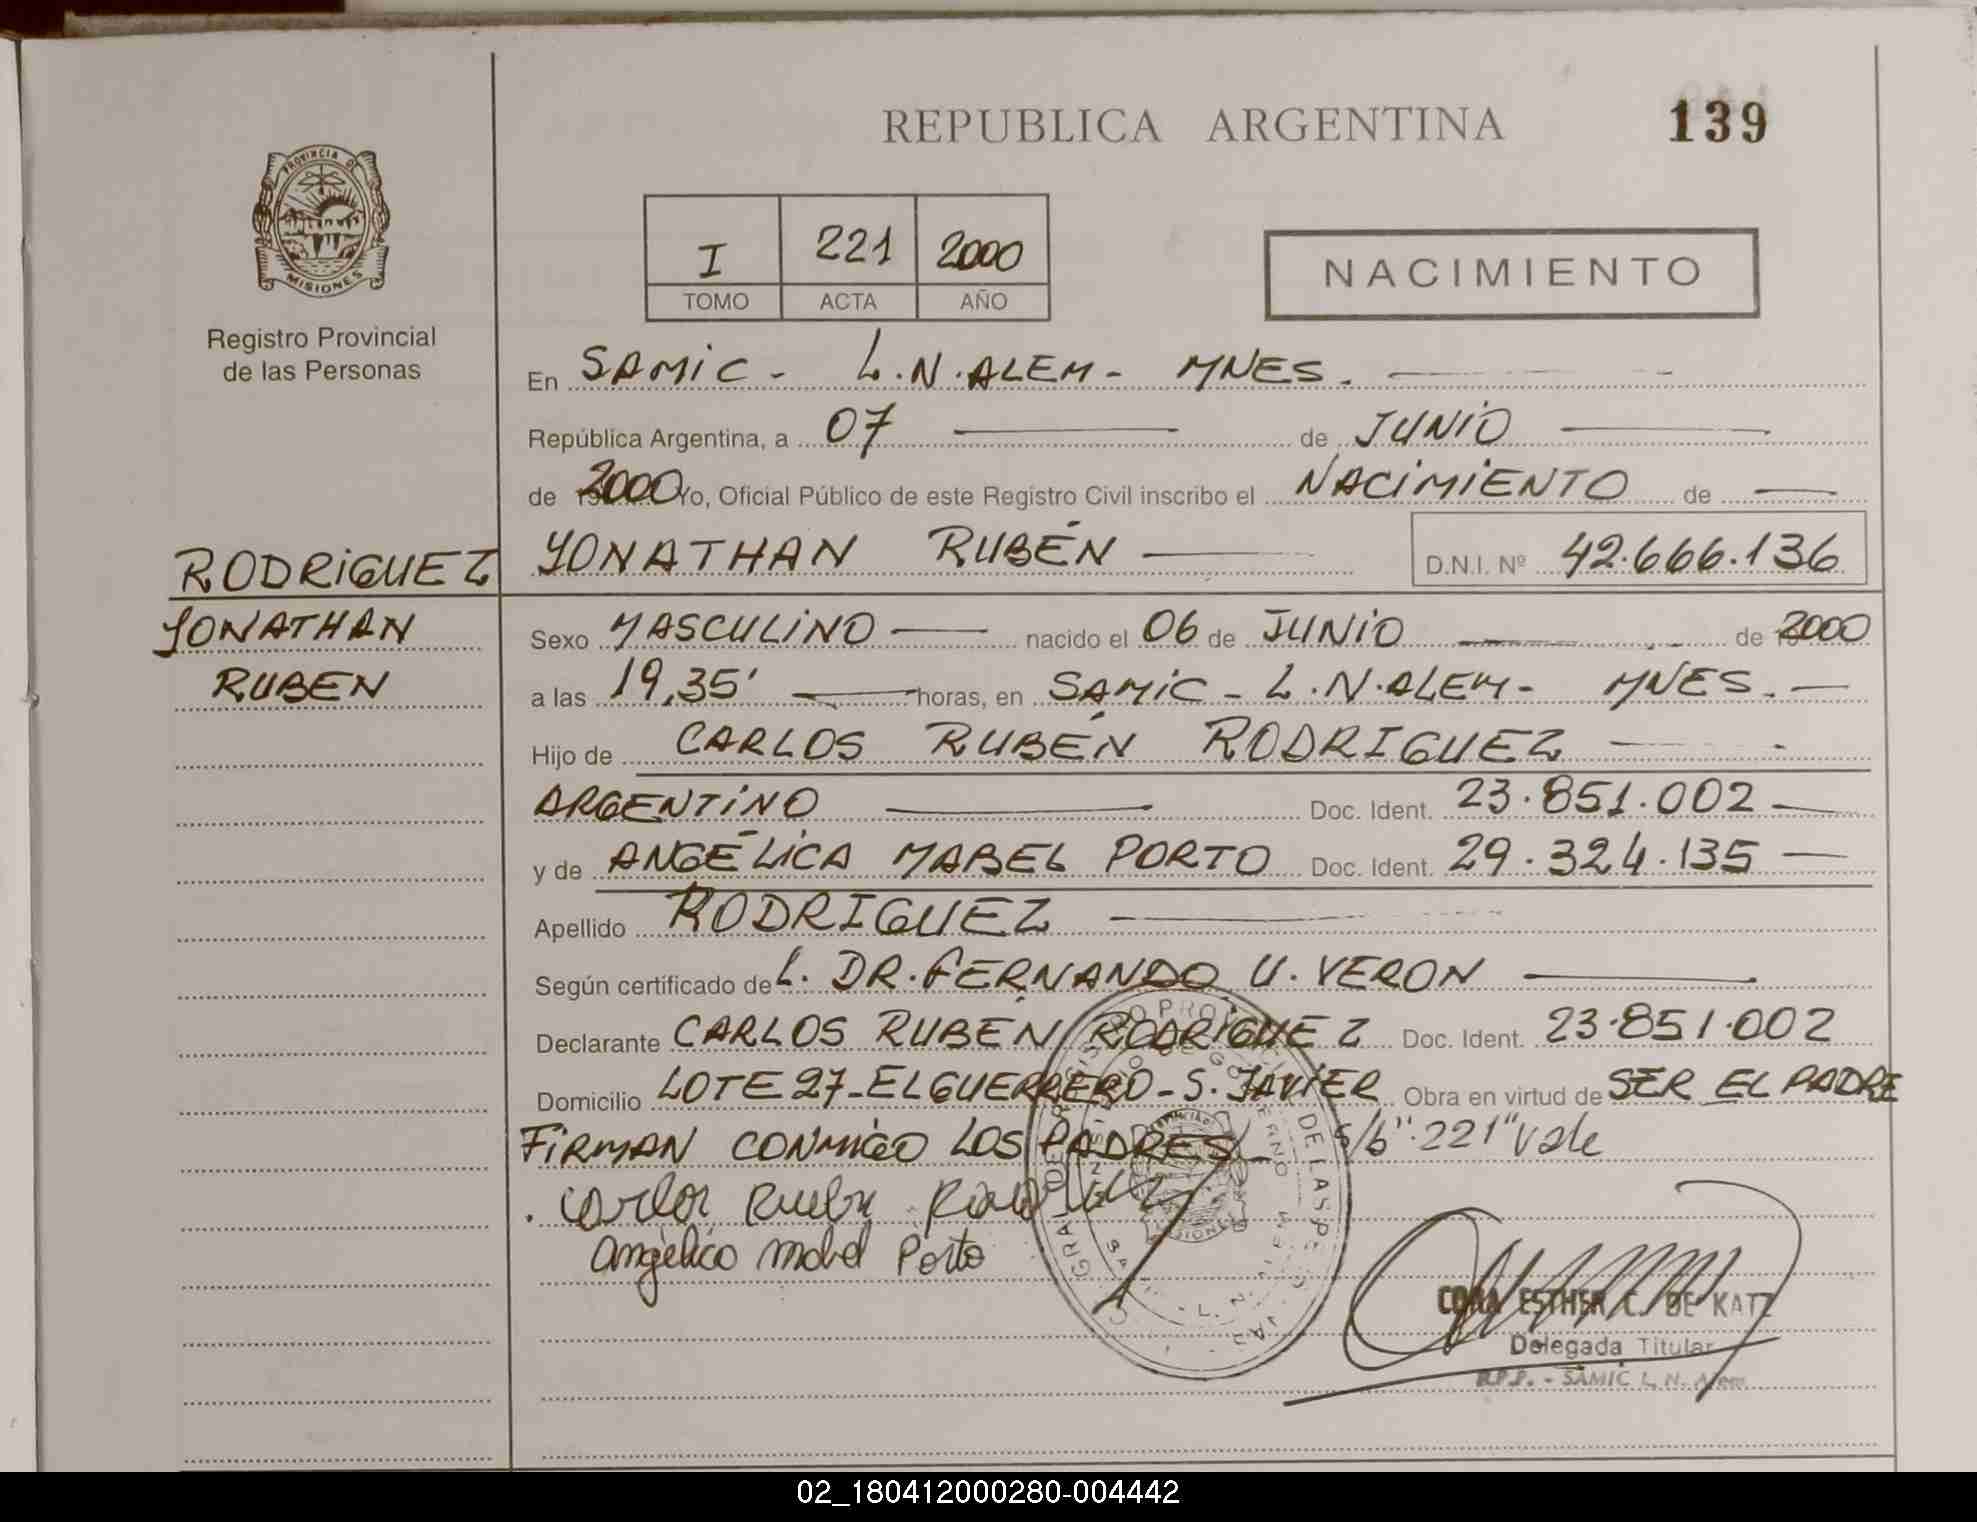 REPUBLICA ARGENTINA
139
PROVINCIA DE
MISIONES
Registro Provincial
de las Personas
I 221 2000
TOMO ACTA AÑO
NACIMIENTO
En SAMIC - L.N.ALEM - MNES.
República Argentina, a 07 de JUNIO
de 2000 Yo, Oficial Público de este Registro Civil inscribo el NACIMIENTO de
RODRIGUEZ
YONATHAN RUBÉN D.N.I. Nº 42.666.136
YONATHAN
RUBEN
Sexo MASCULINO nacido el 06 de JUNIO de 2000
a las 19,35' horas, en SAMIC - L.N.ALEM - MNES.
Hijo de CARLOS RUBÉN RODRIGUEZ
ARGENTINO Doc. Ident. 23.851.002
y de ANGÉLICA MABEL PORTO Doc. Ident. 29.324.135
Apellido RODRIGUEZ
Según certificado de L. DR. FERNANDO U. VERON
Declarante CARLOS RUBÉN RODRIGUEZ Doc. Ident. 23.851.002
Domicilio LOTE 27 - EL GUERRERO - S. JAVIER Obra en virtud de SER EL PADRE
FIRMAN CONMIGO LOS PADRES - S/b "221" Vale
Carlos Ruben
Angélica Mabel Porto
CORA ESTHER C. DE KATZ
Delegada Titular
R.P.P. - SAMIC L. N. Alem
02_180412000280-004442